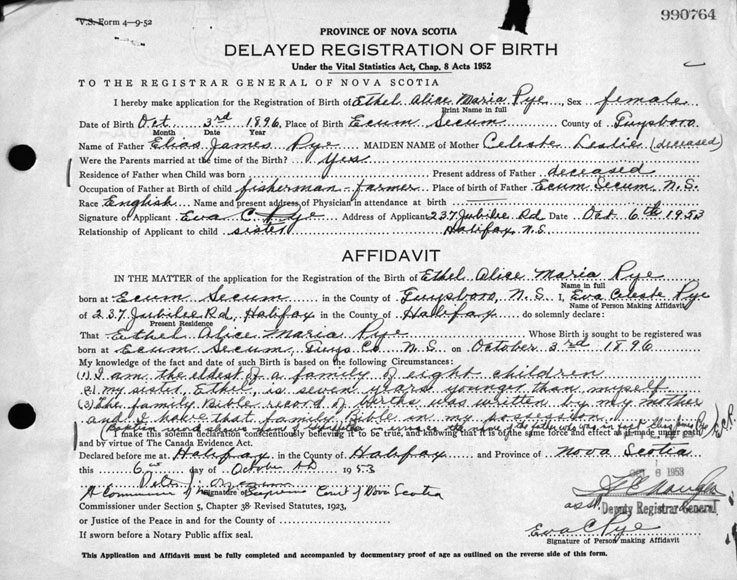 V.S. Form 4-9-52
990764
PROVINCE OF NOVA SCOTIA
DELAYED REGISTRATION OF BIRTH
Under the Vital Statistics Act, Chap. 8 Acts 1952
TO THE REGISTRAR GENERAL OF NOVA SCOTIA
I hereby make application for the Registration of Birth of Ethel Alice Maria Pye, Sex female
Print Name in full
Date of Birth Oct. 3rd 1896, Place of Birth Ecum Secum County of Guysboro
Month Date Year
Name of Father Elias James Pye MAIDEN NAME of Mother Celeste Leslie (deceased)
Were the Parents married at the time of the Birth? Yes
Residence of Father when Child was born Present address of Father deceased
Occupation of Father at Birth of child fisherman - farmer Place of birth of Father Ecum Secum, N.S.
Race English Name and present address of Physician in attendance at birth
Signature of Applicant Eva C. Pye Address of Applicant 237 Jubilee Rd Date Oct. 6th 1953
Relationship of Applicant to child sister Halifax, N.S.
AFFIDAVIT
IN THE MATTER of the application for the Registration of the Birth of Ethel Alice Maria Pye
Name in full
born at Ecum Secum in the County of Guysboro, N.S. I, Eva Celeste Pye
Name of Person Making Affidavit
of 237 Jubilee Rd, Halifax in the County of Halifax do solemnly declare:
Present Residence
That Ethel Alice Maria Pye Whose Birth is sought to be registered was
born at Ecum Secum, Guys Co N.S. on October 3rd 1896
My knowledge of the fact and date of such Birth is based on the following Circumstances:
(1) I am the eldest of a family of eight children
(2) my sister, Ethel, is seven years younger than myself
(3) The family Bible record of births was written by my mother
and I have that family Bible in my possession.
the name of the father who was in fact Elias James Pye E.C.P.
I make this solemn declaration conscientiously believing it to be true, and knowing that it is of the same force and effect as if made under oath
and by virtue of The Canada Evidence Act.
Declared before me at Halifax in the County of Halifax and Province of Nova Scotia
this 6th day of October AD 1953
6 1953
A Commissioner of the Supreme Court of Nova Scotia
Signature of
Commissioner under Section 5, Chapter 38 Revised Statutes, 1923,
asst. Deputy Registrar General
or Justice of the Peace in and for the County of
Eva C Pye
If sworn before a Notary Public affix seal.
Signature of Person making Affidavit
This Application and Affidavit must be fully completed and accompanied by documentary proof of age as outlined on the reverse side of this form.